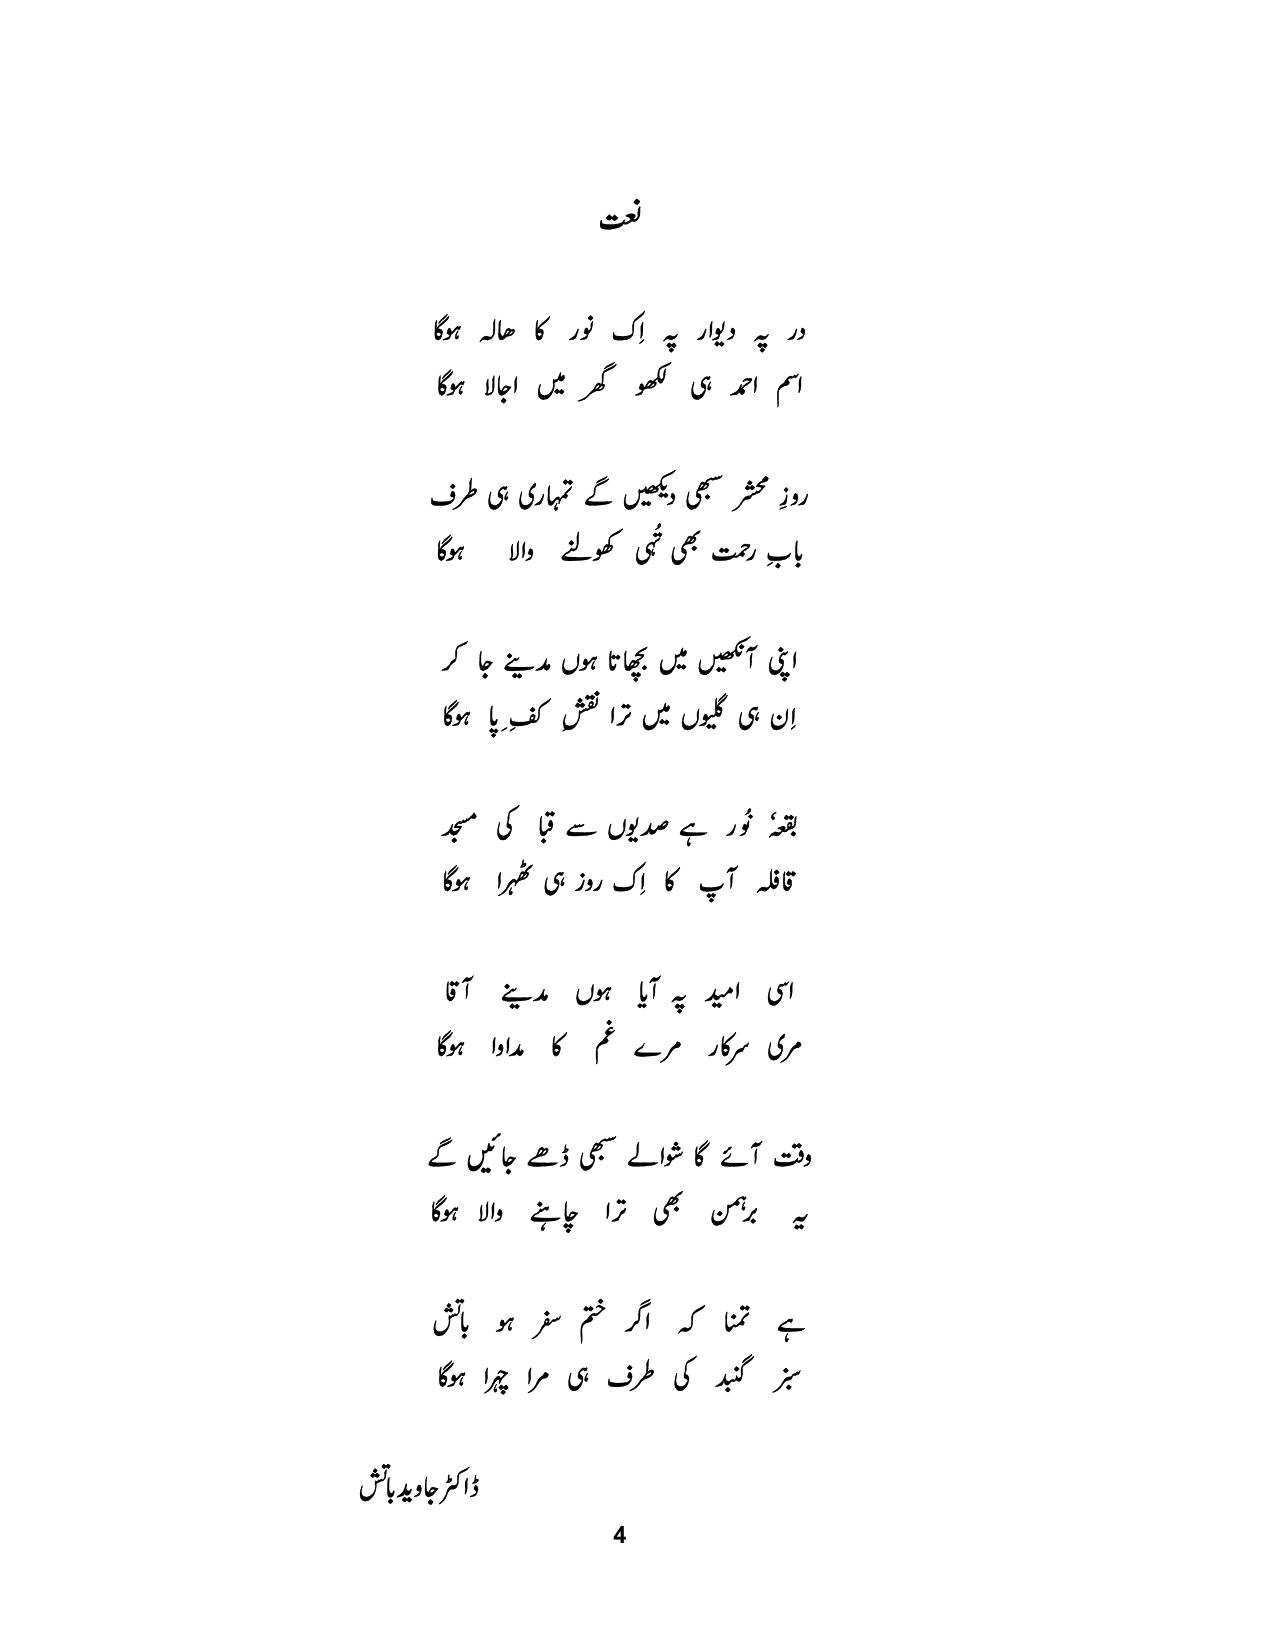 نعت
در پہ دیوار پہ اِک نور کا ھالہ ہوگا
اسم احمد ہی لکھو گھر میں اجالا ہوگا
روزِ محشر سبھی دیکھیں گے تمہاری ہی طرف
بابِ رحمت بھی تُہی کھولنے والا ہوگا
اپنی آنکھیں میں بچھاتا ہوں مدینے جا کر
اِن ہی گلیوں میں ترا نقشِ کفِ پا ہوگا
بقعۂ نُور ہے صدیوں سے قبا کی مسجد
قافلہ آپ کا اِک روز ہی ٹھہرا ہوگا
اسی امید پہ آیا ہوں مدینے آقا
مری سرکار مرے غم کا مداوا ہوگا
وقت آئے گا شوالے سبھی ڈھے جائیں گے
یہ برہمن بھی ترا چاہنے والا ہوگا
ہے تمنا کہ اگر ختم سفر ہو باتش
سبز گنبد کی طرف ہی مرا چہرا ہوگا
ڈاکٹر جاوید باتش
4